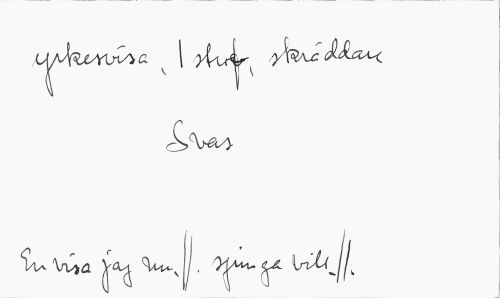 yrkesvisa, 1 strof, skräddare
Svas
En visa jag nu.//. sjunga vill.//.